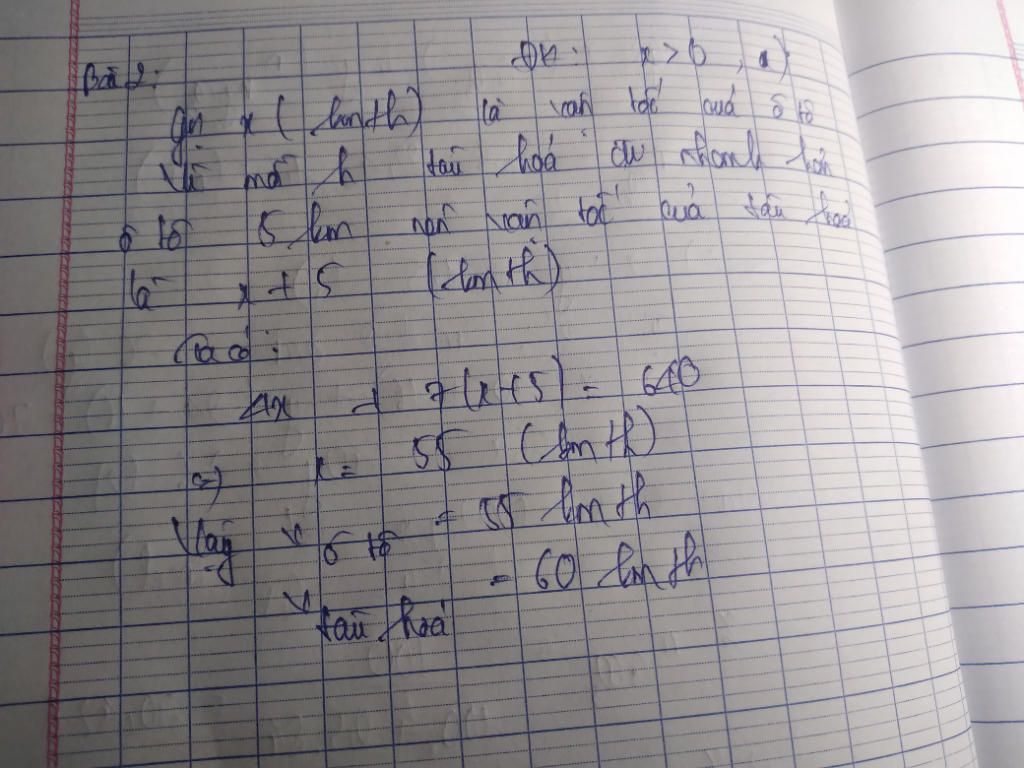 Bài 2: ĐK: x > 0
Gọi x (km/h) là vận tốc của ô tô
Vì mỗi h tàu hoả đi nhanh hơn
ô tô 5 km nên vận tốc của tàu hoả
là x + 5 (km/h)
Ta có:
4x + 7(x+5) = 640
=) x = 55 (km/h)
Vậy v ô tô = 55 km/h
v tàu hoả = 60 km/h